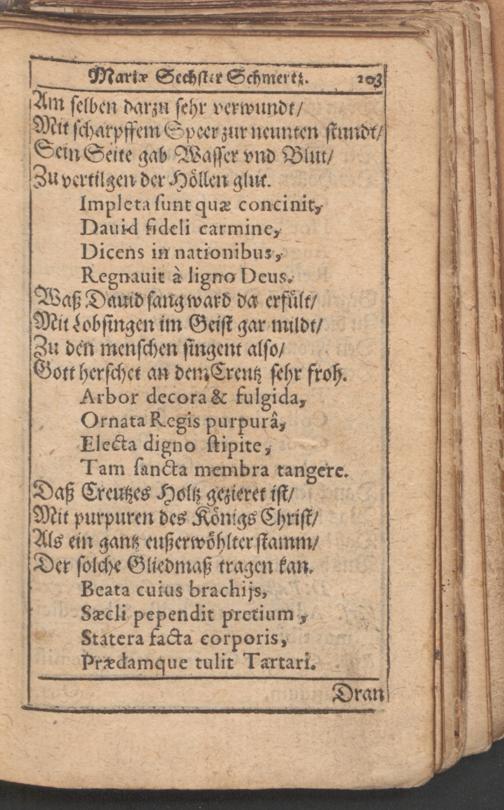 Mariæ Sechster Schmertz. 103
Am selben darzu sehr verwundt/
Mit scharpffem Speer zur neunten stundt/
Sein Seite gab Wasser vnd Blut/
Zu vertilgen der Höllen glut.
Impleta sunt quæ concinit,
Dauid fideli carmine,
Dicens in nationibus,
Regnauit à ligno Deus.
Waß Dauid sang ward da erfült/
Mit Lobsingen im Geist gar mildt/
Zu den menschen singent also/
Gott herschet an dem Creutz sehr froh.
Arbor decora & fulgida,
Ornata Regis purpurâ,
Electa digno stipite,
Tam sancta membra tangere.
Daß Creutzes Holtz gezieret ist/
Mit purpuren des Königs Christ/
Als ein gantz eußerwöhlter stamm/
Der solche Gliedmaß tragen kan.
Beata cuius brachijs,
Sæcli pependit pretium,
Statera facta corporis,
Prædamque tulit Tartari.
Dran